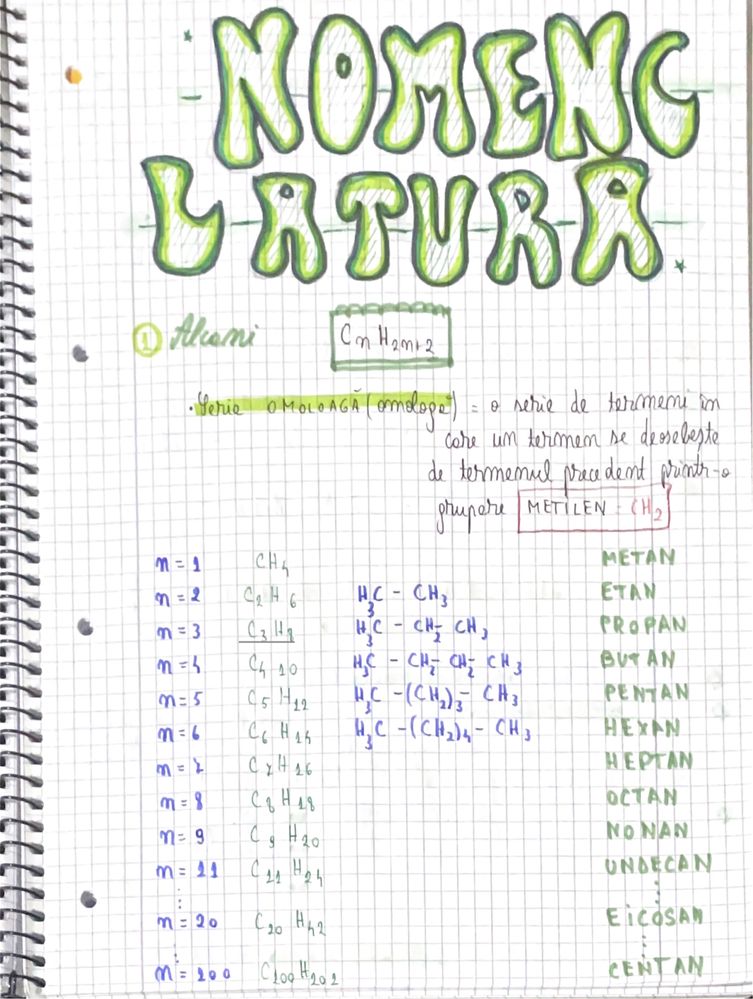 NOMENC
LATURA
1 Alcani CnH2n+2
• Serie OMOLOAGĂ (omologe) = o serie de termeni în
care un termen se deosebește
de termenul precedent printr-o
grupare METILEN: CH2
n = 1 CH4 METAN
n = 2 C2H6 H3C - CH3 ETAN
n = 3 C3H8 H3C - CH2- CH3 PROPAN
n = 4 C4 10 H3C - CH2- CH2- CH3 BUTAN
n = 5 C5H12 H3C -(CH2)3- CH3 PENTAN
n = 6 C6H14 H3C -(CH2)4- CH3 HEXAN
n = 7 C7H16 HEPTAN
n = 8 C8H18 OCTAN
n = 9 C9H20 NONAN
n = 11 C11H24 UNDECAN
n = 20 C20H42 EiCOSAN
n = 100 C100H202 CENTAN